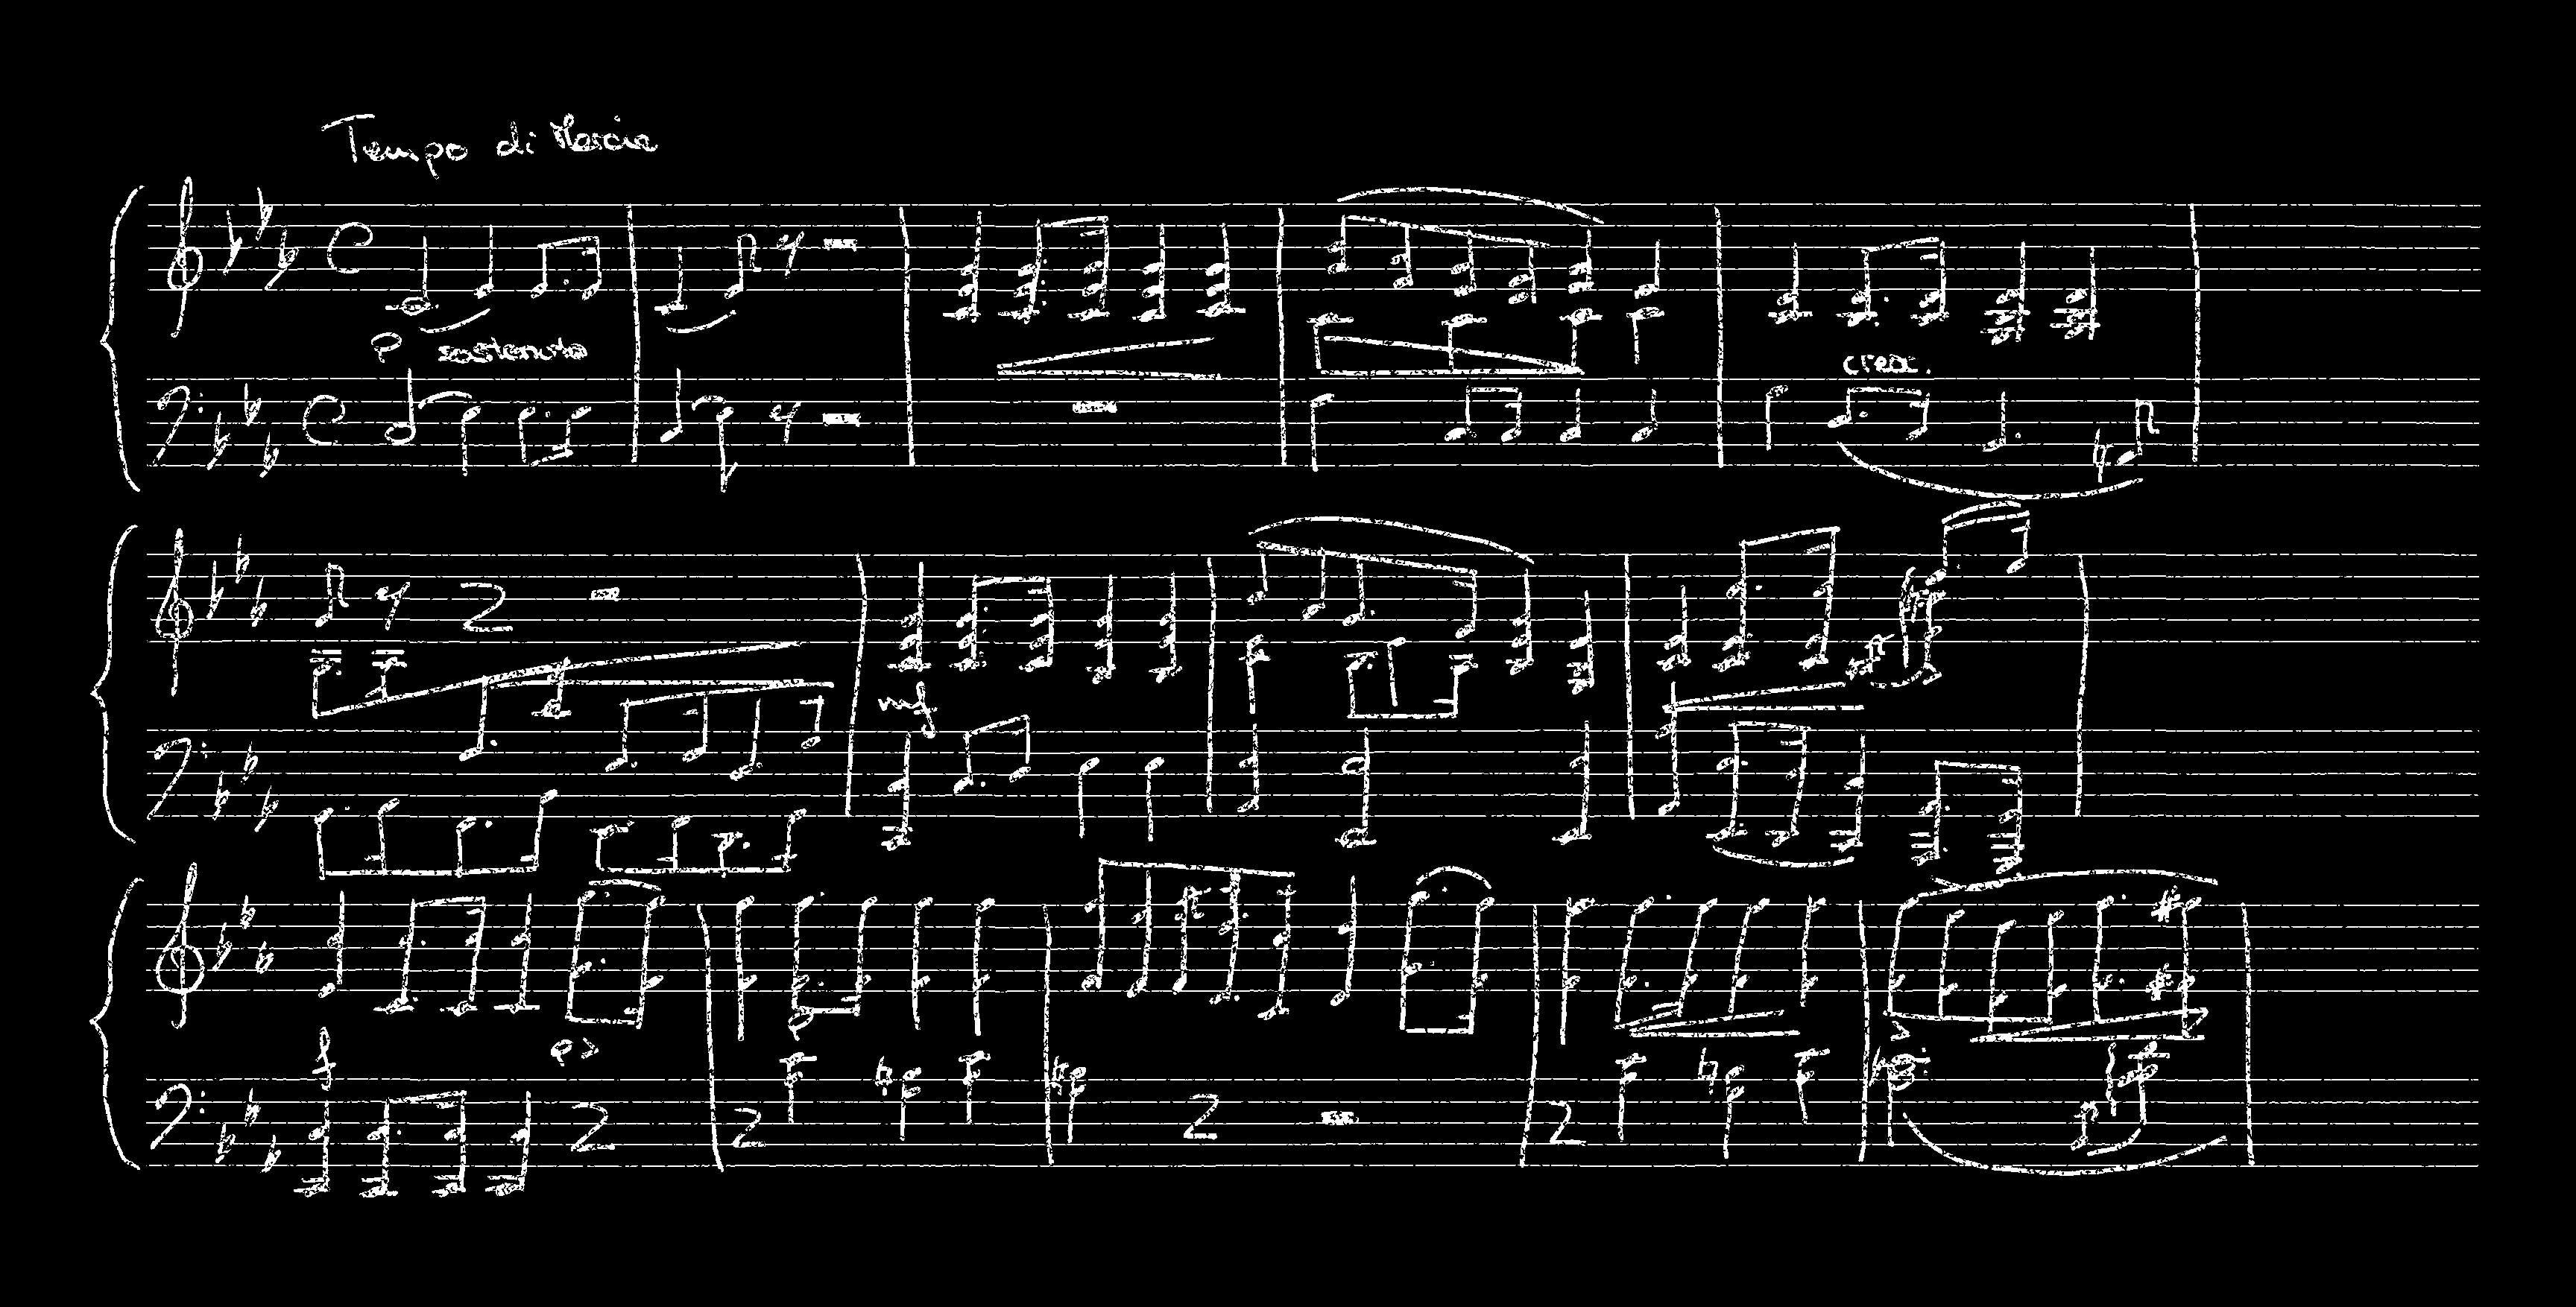 Tempo di Marcia
P sostenuto
cresc.
mf
f
p